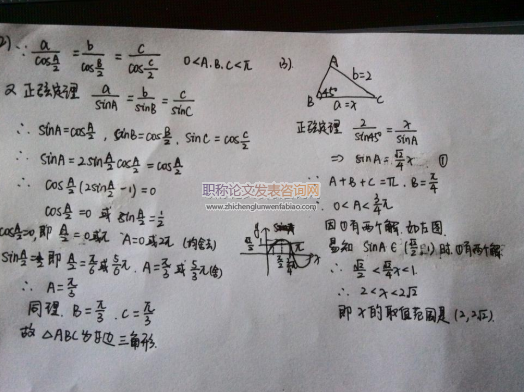 2) ∵ a/cos A/2 = b/cos B/2 = c/cos C/2   0<A.B.C<π
又 正弦定理 a/sinA = b/sinB = c/sinC
∴ sinA=cos A/2, sinB=cos B/2, sinC=cos C/2
∴ sinA=2sin A/2 cos A/2=cos A/2
∴ cos A/2 (2sin A/2 -1)=0
cos A/2=0 或 sin A/2=1/2
cos A/2=0, 即 A/2=0或π A=0或2π (均舍去)
sin A/2=1/2 即 A/2=π/6或5/6π. A=π/3或5/3π(舍)
∴ A=π/3
同理. B=π/3. C=π/3
故 △ABC为等边三角形.
3).
A
b=2
B 45° C
a=x
正弦定理 2/sin45° = x/sinA
⇒ sinA=√2/4 x. ①
∵ A+B+C=π. B=π/4
∴ 0<A<3/4π
因①有两个解. 如左图.
易知 sinA∈(√2/2,1)时①有两个解.
∴ √2/2<√2/4 x<1.
∴ 2<x<2√2
即 x的取值范围是(2,2√2).
y
sinA
1
π
x
职称论文发表咨询网
www.zhichenglunwenfabiao.com